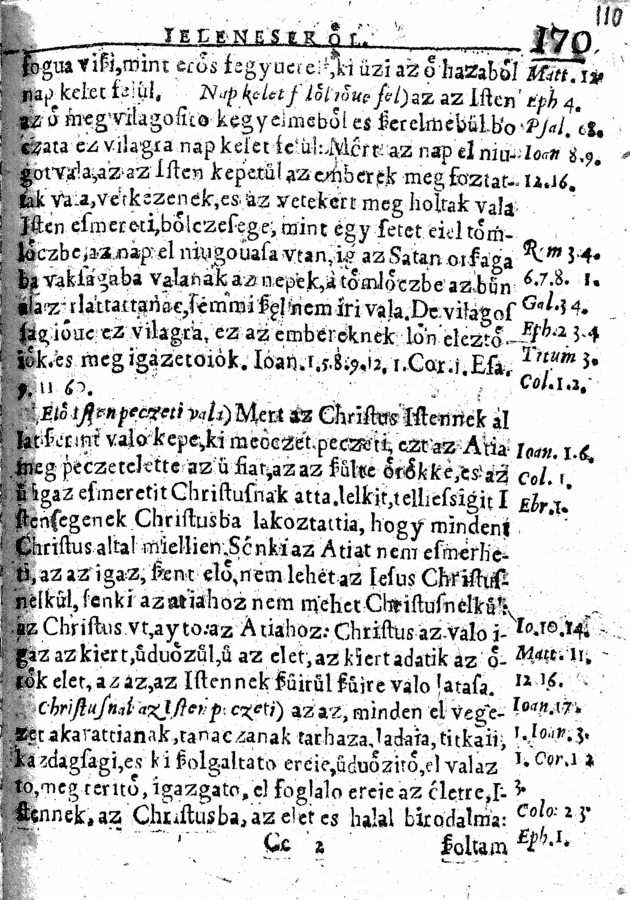 110
IELENESEKRÖL.
170
fogua viſi, mint erös fegyueres, ki üzi az ö hazaból
nap kelet felül. Nap kelet f löl iöue fel) az az Iſten
az ö meg vilagoſito kegyelmeböl es ßerelmebül bo
czata ez vilagra nap kelet felül: Mert az nap el niu-
got vala, az az Iſten kepetül az emberek meg foztat-
tak vala, vetkezenek, es az vetekert meg holtak vala
Iſten eſmereti, bölczeſege, mint egy ſetet eiel töm-
löczbe, az nap el niugouaſa vtan, ig az Satan orſaga
ba vakſagaba valanak az nepek, a tömlöczbe az bün
ſemmi ßel nem iri vala. De vilagoſ
ſag iöue ez vilagra, ez az embereknek lön eleztö-
iök. es meg igazetoiök. Ioan. 1. 5. 8. 9. 12. 1. Cor. 1. Eſa.
9. 11 60.
Elö iſten peczeti vala) Mert az Chriſtus Iſtennek al
lat ßerint valo kepe, ki meöczet peczeti, ezt az Atia
meg peczetelette az ü fiat, az az ßülte örökke, es az
ü igaz eſmeretit Chriſtuſnak atta. lelkit, telliesſigit I
ſtenſegenek Chriſtusba lakoztattia, hogy mindent
Chriſtus altal miellien. Senki az Atiat nem eſmerhe-
ti, az az igaz, ßent elö, nem lehet az Ieſus Chriſtuſ-
nelkül, ſenki az atiahoz nem mehet Chriſtuſnelkül:
az Chriſtus vt, ayto: az Atiahoz: Chriſtus az valo i-
gaz az kiert, üduözül, ü az elet, az kiert adatik az ö-
rök elet, az az, az Iſtennek ßüirül ßüire valo lataſa.
Chriſtuſnal az Iſten p: czeti) az az, minden el vege-
zet akarattianak, tanaczanak tarhaza, ladaia, titkaii,
kazdagſagi, es ki ßolgaltato ereie, üduözitö, el valaz
to, meg teritö, igazgato, el foglalo ereie az életre, I-
ſtennek, az Chriſtusba, az elet es halal birodalma:
Cc 2 ßoltam
Matt. 12.
eph 4.
Pſal. 68.
Ioan 8. 9.
12. 16.
Rom 3. 4.
6. 7. 8. 1.
Gal. 3 4.
Eph. 2 3. 4
Titum 3.
Col. 1. 2.
Ioan. 1. 6.
Col. 1.
Ebr. 1.
Io. 10. 14.
Matt. 11.
12 16.
Ioan. 17.
1. Ioan. 3.
1. Cor. 1 2
3.
Colo: 2 3.
Eph. 1.